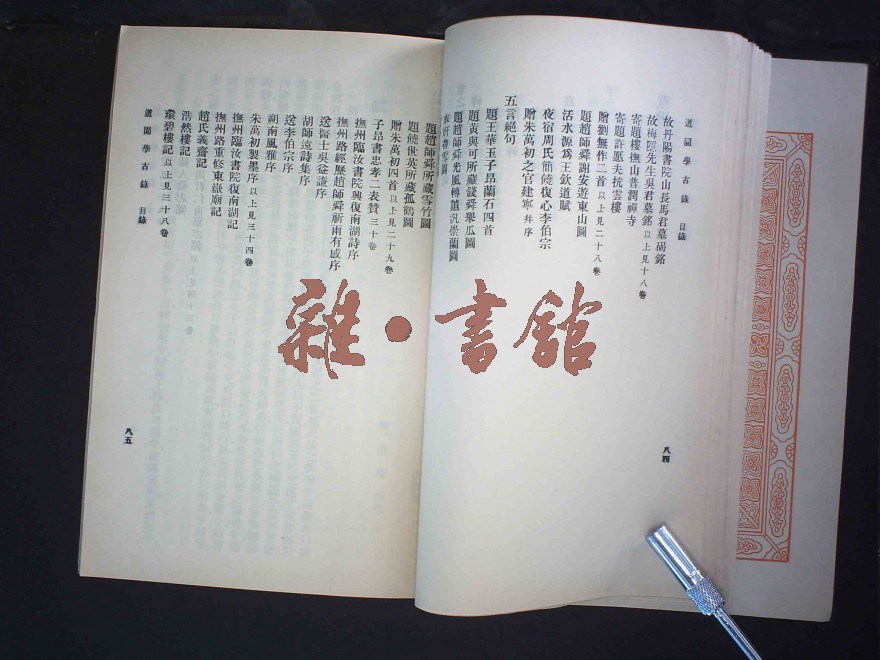 道園學古錄 目錄
故丹陽書院山長馬君墓碣銘
故梅隱先生吳君墓銘 以上見十八卷
寄題樓撫山普潤禪寺
寄題許愿夫抗雲樓
贈劉無作二首 以上見二十八卷
題趙師舜謝安遊東山圖
活水源爲王欽道賦
夜宿周氏簡饒復心李伯宗
贈朱萬初之官建寧 并序
五言絕句
題王華玉子昂蘭石四首
題黃與可所藏錢舜舉瓜圖
題趙師舜光風轉蕙汎崇蘭圖
八四
題趙師舜所藏雪竹圖
題饒世英所藏孤鶴圖
贈朱萬初四首 以上見二十九卷
子昂書忠孝二表贊 三十卷
撫州臨汝書院興復南湖詩序
撫州路經歷趙師舜祈雨有感序
送醫士吳益謙序
胡師遠詩集序
送李伯宗序
朔南風雅序
朱萬初製墨序 以上見三十四卷
撫州臨汝書院復南湖記
撫州路重修東嶽廟記
趙氏義齋記
浩然樓記
環碧樓記 以上見三十八卷
道園學古錄 目錄
八五
雜·書館